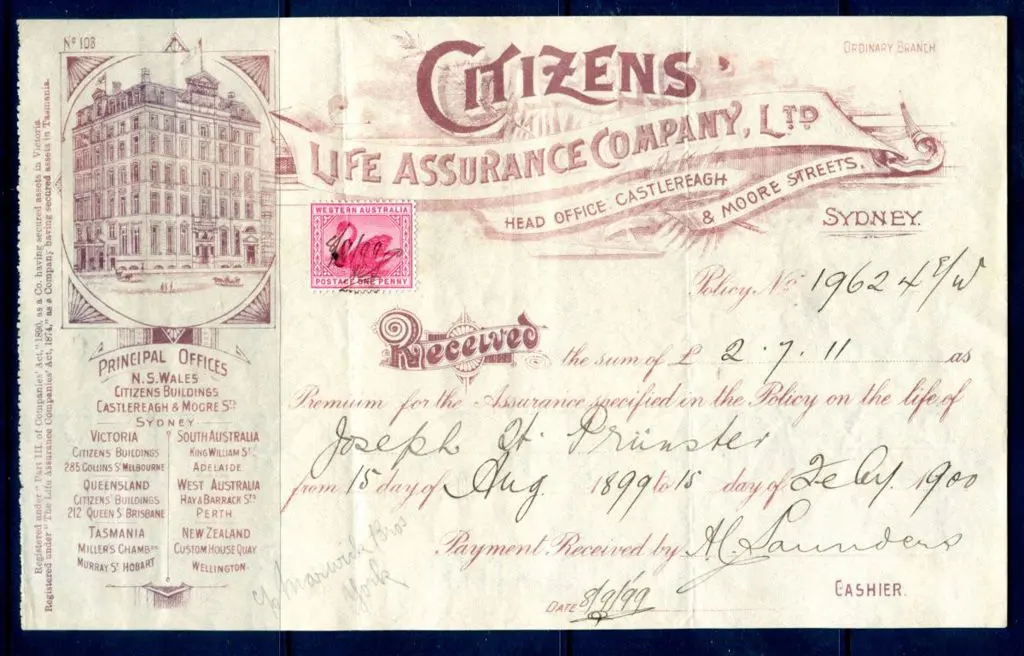 Nº 103
CITIZENS
ORDINARY BRANCH
LIFE ASSURANCE COMPANY, LTD
HEAD OFFICE CASTLEREAGH
& MOORE STREETS,
SYDNEY.
WESTERN AUSTRALIA
POSTAGE ONE PENNY
Policy No. 19624 E/W
Received the sum of £ 2.7.11 as
Premium for the Assurance specified in the Policy on the life of
Joseph H. Prünster
from 15 day of Aug. 1899 to 15 day of Feby. 1900
Payment Received by A.C. Saunders
CASHIER.
DATE 8/9/99
c/o Marwick Bros
York
PRINCIPAL OFFICES
N.S.WALES
CITIZENS BUILDINGS
CASTLEREAGH & MOORE STS
SYDNEY
VICTORIA
CITIZENS BUILDINGS
285 COLLINS ST MELBOURNE
QUEENSLAND
CITIZENS BUILDINGS
212 QUEEN ST BRISBANE
TASMANIA
MILLER'S CHAMBRS
MURRAY ST HOBART
SOUTH AUSTRALIA
KING WILLIAM ST.
ADELAIDE
WEST AUSTRALIA
HAY & BARRACK STS
PERTH
NEW ZEALAND
CUSTOM HOUSE QUAY
WELLINGTON
Registered under "Part III. of Companies' Act," 1890, as a Co. having secured assets in Victoria.
Registered under "The Life Assurance Companies' Act, 1874," as a Company having secured assets in Tasmania.